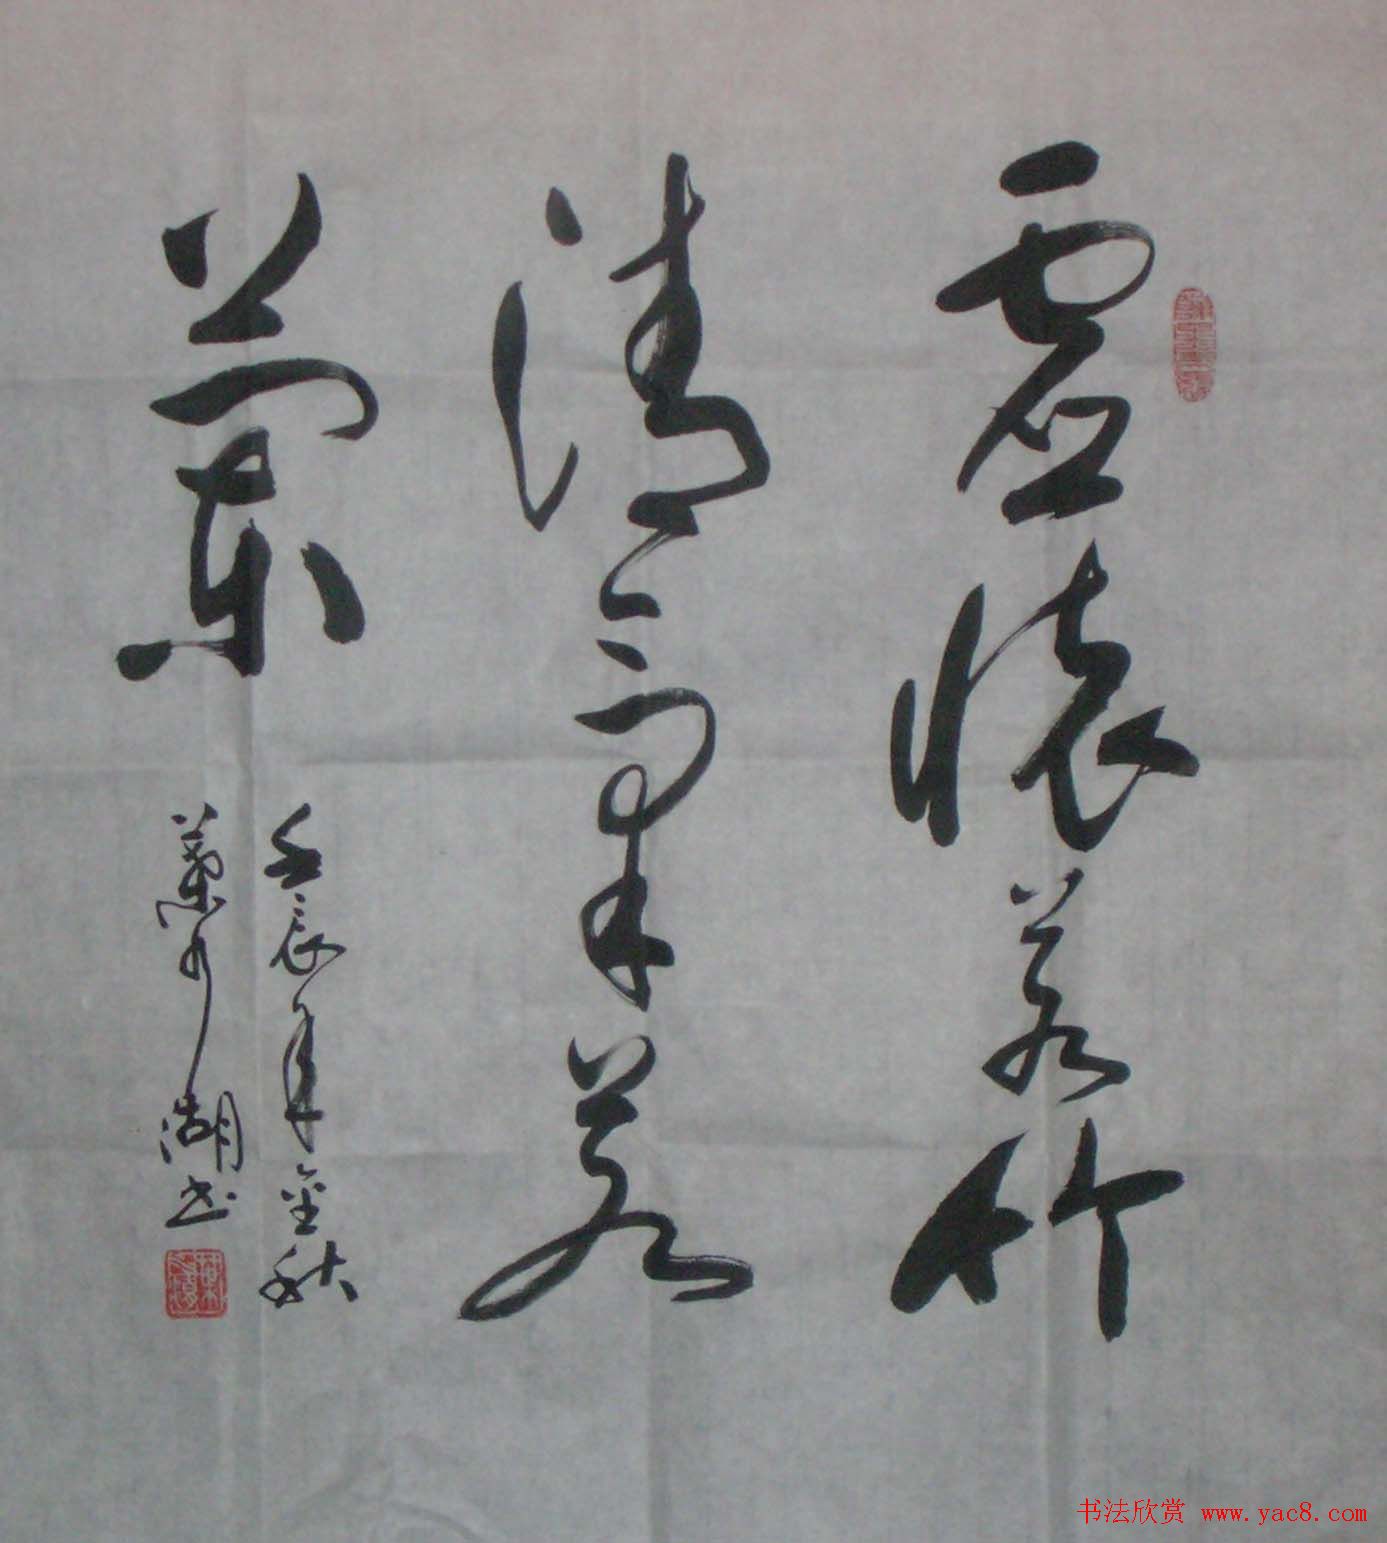 虚懷若竹
清氣若
蘭
壬辰年金秋
湖书
书法欣赏 www.yac8.com